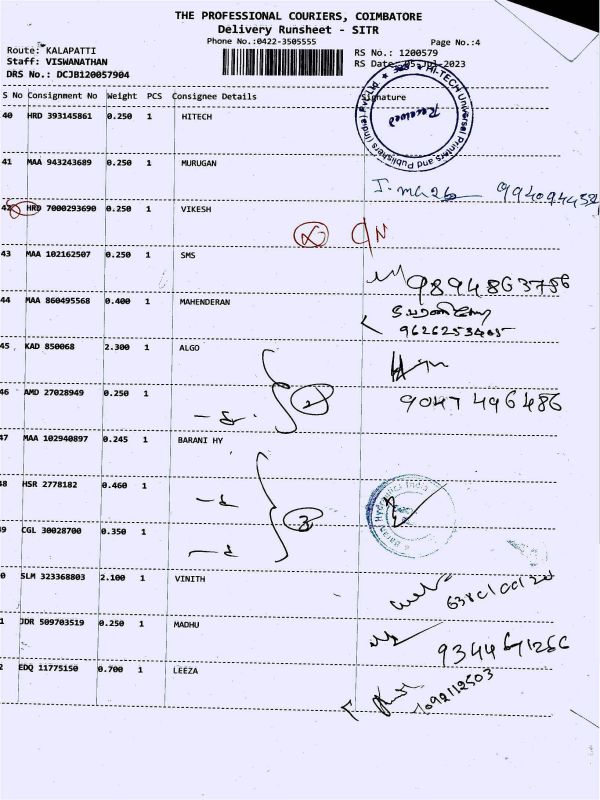 THE PROFESSIONAL COURIERS, COIMBATORE
Delivery Runsheet - SITR
Phone No.:0422-3505555 Page No.:4
Route: KALAPATTI RS No.: 1200579
Staff: VISWANATHAN RS Date 05-Jul-2023
DRS No.: DCJB120057904
S No Consignment No Weight PCS Consignee Details Signature
40 HRD 393145861 0.250 1 HITECH
HI-TECH Universal Printers and Publishers (India)
Received
41 MAA 943243689 0.250 1 MURUGAN
42 HRD 7000293690 0.250 1 VIKESH
43 MAA 102162507 0.250 1 SMS
9894863756
44 MAA 860495568 0.400 1 MAHENDERAN
9626253405
45 KAD 850068 2.300 1 ALGO
46 AMD 27028949 0.250 1
2
9047496486
47 MAA 102940897 0.245 1 BARANI HY
48 HSR 2778182 0.460 1
3
Barani Hydraulics India
49 CGL 30028700 0.350 1
0 SLM 323368803 2.100 1 VINITH
1 JDR 509703519 0.250 1 MADHU
2 EDQ 11775150 0.700 1 LEEZA